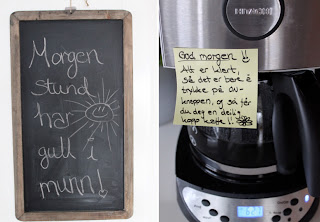 Morgen
stund
har
gull i
munn!
God morgen!!
Alt er klart,
så det er bare å
trykke på av-
knappen, og så får
du deg en deilig
kopp kaffe!!